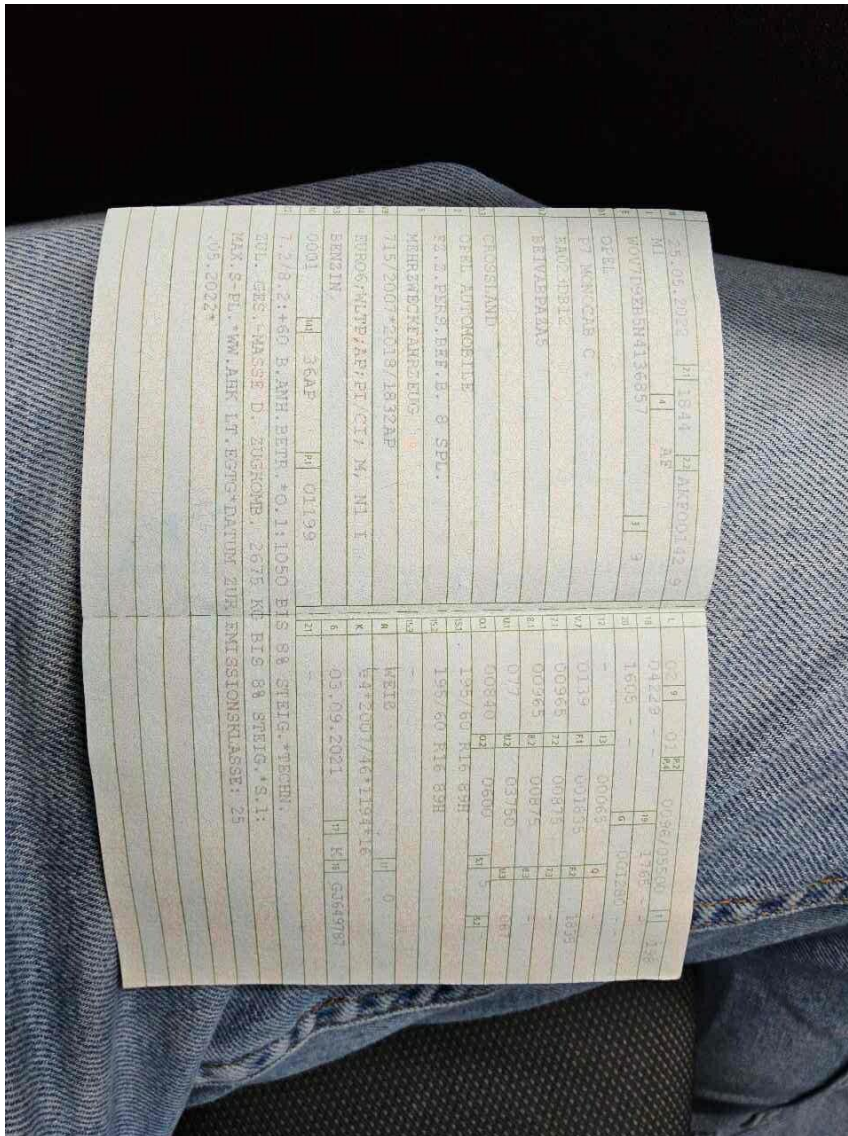 25.05.2022 2.1 1844 2.2 AKF00142 6
M1 4 AF
W0V7H9EH5N4136857 3 9
OPEL
P7 MONOCAB C
CROSSLAND
OPEL AUTOMOBILE
FZ.Z.PERS.BEF.B. 8 SPL.
MEHRZWECKFAHRZEUG
715/2007*2018/1832AP
EURO6;WLTP;AP;PI/CI; M, N1 I
BENZIN
0001 14.1 36AP P.1 01199
L 02 9 01 P.2 P.4 0096/05500 T
18 04229 - - 19 1765 - -
20 1605 - - G 001280 -
12 - 13 00065 Q -
V.7 0139 F.1 001835 F.2 1835
7.1 00965 7.2 00875 7.3 -
8.1 00965 8.2 00875 8.3 -
U.1 077 U.2 03750 U.3 067
O.1 00840 O.2 0600 S.1 5 S.2
15.1 195/60 R16 89H
15.2 195/60 R16 89H
15.3 -
R WEIß 11 0
K e4*2007/46*1194*16
6 03.09.2021 17 K 16 GJ649787
21 -
7.2/8.2:+60 B.ANH.BETR.*O.1:1050 BIS 8% STEIG.*TECHN.
ZUL. GES.-MASSE D. ZUGKOMB. 2675 KG BIS 8% STEIG.*S.1:
MAX.S-PL.*WW.AHK LT.EGTG*DATUM ZUR EMISSIONSKLASSE: 25
.05.2022*